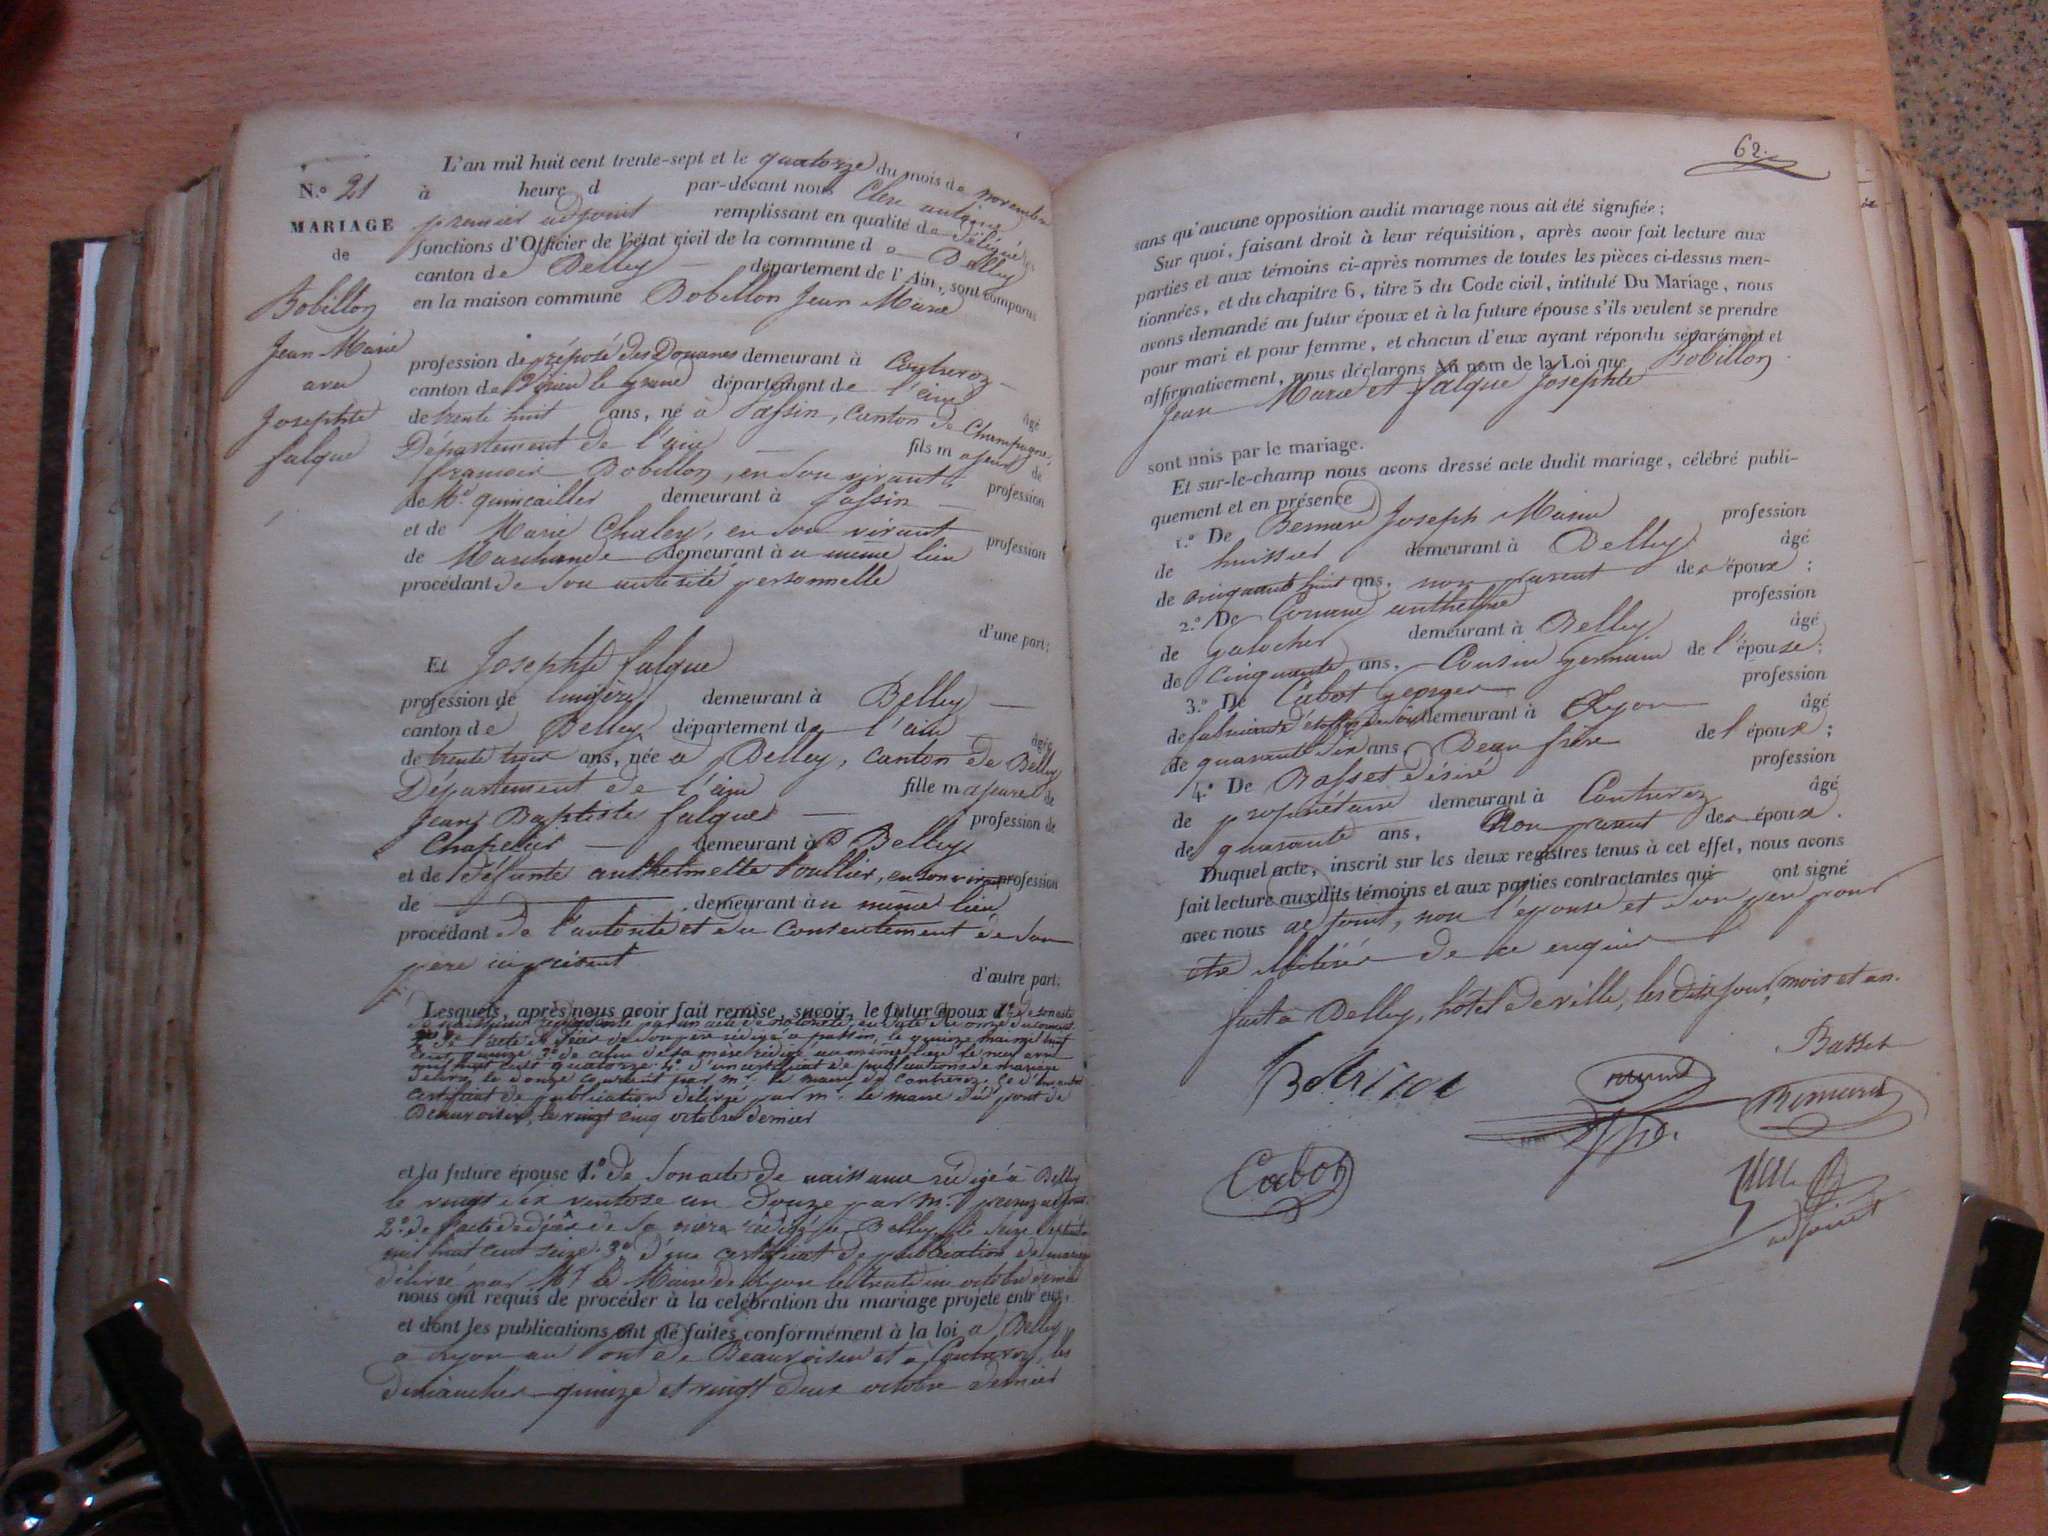 L'an mil huit cent trente-sept et le quatorze du mois de novembre
N.º 21 à heure d par-devant nous Clerc
MARIAGE premier adjoint remplissant en qualité de délégué
de fonctions d'Officier de l'état civil de la commune de Belley
canton de Belley département de l'Ain, sont comparus
Bobillon en la maison commune Bobillon Jean Marie
Jean Marie
avec
Josephte
falque
profession de préposé des Douanes demeurant à Contrevoz
canton de Virieu le grand département de l'ain âgé
de trente huit ans, né à Passin, canton de Champagne,
Département de l'ain fils majeur de
francois Bobillon, en son vivant profession
de Md quincailler demeurant à Passin
et de Marie Chaley, en son vivant profession
de Marchande demeurant au même lieu
procédant de son autorité personnelle
d'une part;
Et Josephte falque
profession de lingère demeurant à Belley
canton de Belley département de l'ain âgée
de trente trois ans, née à Belley, canton de Belley
Département de l'ain fille majeure de
Jean Baptiste falque profession de
Chapelier demeurant à Belley
et de défunte anthelmette en son vivant profession
de demeurant au même lieu
procédant de l'autorité et du consentement de son
père ici présent
d'autre part;
Lesquels, après nous avoir fait remise, savoir, le futur époux 1º de son acte
de naissance par un acte de notoriété, en date du onze du courant
2º de l'acte de décès de son père rédigé à passin, le quinze mai mil huit
cent quinze 3º de celui de sa mère rédigé au même lieu le neuf
mil huit cent quatorze 4º d'un certificat de publications de mariage
délivré le donze courant par mr. le maire de Contrevoz. 5º d'un autre
certificat de publication délivré par mr. le maire du pont de
Beauvoisin, le vingt cinq octobre dernier
et la future épouse 1.º de son acte de naissance rédigé à Belley
le vingt six ventose an Douze par mr.
2º de l'acte de décès de sa mère rédigé à Belley le seize
mil huit cent seize. 3º d'un certificat de publication de mariage
délivré par Mr le Maire de Lyon le octobre dernier
nous ont requis de procéder à la célébration du mariage projeté entr'eux,
et dont les publications ont été faites conformément à la loi à Belley
à Lyon au Pont de Beauvoisin et à Contrevoz, les
dimanches quinze et vingt deux octobre dernier
62.
sans qu'aucune opposition audit mariage nous ait été signifiée;
Sur quoi, faisant droit à leur réquisition, après avoir fait lecture aux
parties et aux témoins ci-après nommés de toutes les pièces ci-dessus men-
tionnées, et du chapitre 6, titre 5 du Code civil, intitulé Du Mariage, nous
avons demandé au futur époux et à la future épouse s'ils veulent se prendre
pour mari et pour femme, et chacun d'eux ayant répondu séparément et
affirmativement, nous déclarons Au nom de la Loi que Bobillon
Jean Marie et falque Josephte
sont unis par le mariage.
Et sur-le-champ nous avons dressé acte dudit mariage, célébré publi-
quement et en présence
1.º De Bernard Joseph Marie profession
de huissier demeurant à Belley âgé
de cinquante huit ans, non parent des époux;
2.º De anthelme profession
de galocher demeurant à Belley âgé
de cinquante ans, Cousin germain de l'épouse;
3.º De Cabot georges profession
de fabricant d'étoffes de soie demeurant à Lyon âgé
de quarante six ans, Beau frère de l'époux;
4.º De Basset désiré profession
de propriétaire demeurant à Contrevoz âgé
de quarante ans, Non parent des époux.
Duquel acte, inscrit sur les deux registres tenus à cet effet, nous avons
fait lecture auxdits témoins et aux parties contractantes qui ont signé
avec nous adjoint, non l'épouse et son père pour
être illitérés de ce enquis
fait à Belley, hôtel de ville, les dits jour, mois et an.
Bobillon Basset
Bernard
Cabot
adjoint